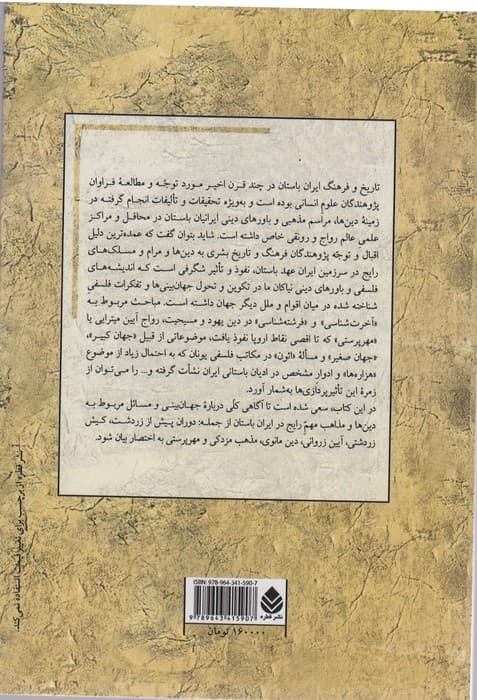 تاریخ و فرهنگ ایران باستان در چند قرن اخیر مورد توجّه و مطالعهٔ فراوان
پژوهندگان علوم انسانی بوده است و به‌ویژه تحقیقات و تألیفات انجام گرفته در
زمینهٔ دین‌ها، مراسم مذهبی و باورهای دینی ایرانیان باستان در محافل و مراکز
علمی عالم رواج و رونقی خاص داشته است. شاید بتوان گفت که عمده‌ترین دلیل
اقبال و توجّه پژوهندگان فرهنگ و تاریخ بشری به دین‌ها و مرام و مسلک‌های
رایج در سرزمین ایران عهد باستان، نفوذ و تأثیر شگرفی است که اندیشه‌های
فلسفی و باورهای دینی نیاکان ما در تکوین و تحول جهان‌بینی‌ها و تفکرات فلسفی
شناخته شده در میان اقوام و ملل دیگر جهان داشته است. مباحث مربوط به
«آخرت‌شناسی» و «فرشته‌شناسی» در دین یهود و مسیحیت، رواج آیین میترایی یا
«مهرپرستی» که تا اقصی نقاط اروپا نفوذ یافت، موضوعاتی از قبیل «جهان کبیر»،
«جهان صغیر» و مسألهٔ «ائون» در مکاتب فلسفی یونان که به احتمال زیاد از موضوع
«هزاره‌ها» و ادوار مشخص در ادیان باستانی ایران نشأت گرفته و... را می‌توان از
زمرهٔ این تأثیرپردازی‌ها به‌شمار آورد.
در این کتاب، سعی شده است تا آگاهی کلّی دربارهٔ جهان‌بینی و مسائل مربوط به
دین‌ها و مذاهب مهمّ رایج در ایران باستان از جمله: دوران پیش از زردشت، کیش
زردشتی، آیین زروانی، دین مانوی، مذهب مزدکی و مهرپرستی به اختصار بیان شود.
نشر قطره از برچسب برای تغییر قیمت استفاده نمی‌کند.
ISBN: 978-964-341-590-7
9 789643 415907
نشر قطره
۱۶۰۰۰۰ تومان